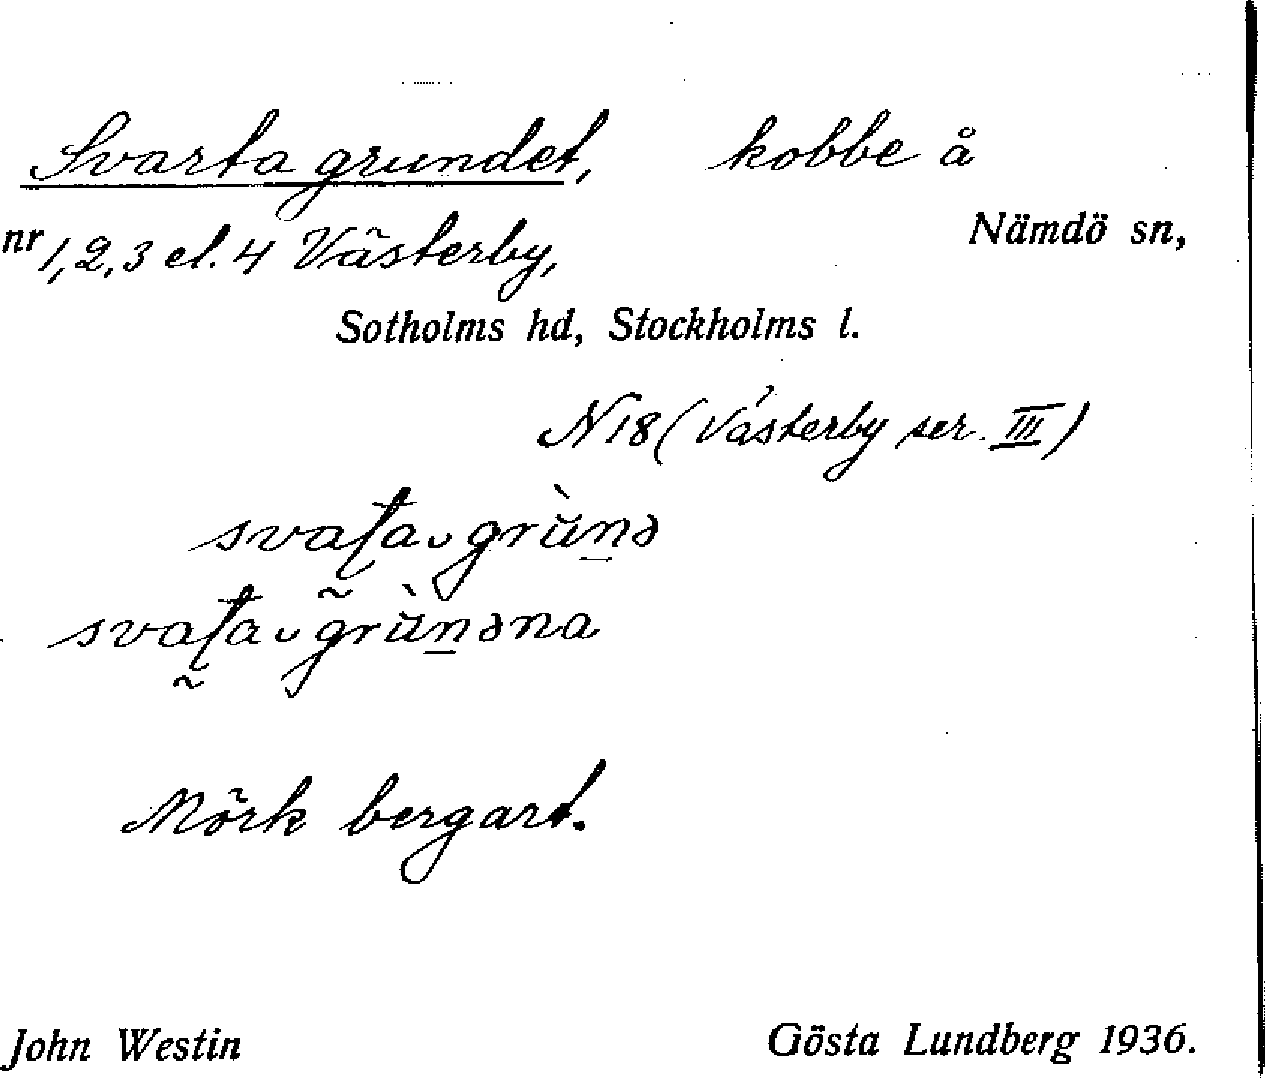 Svarta grundet, kobbe å
nr 1, 2, 3 el. 4 Västerby, Nämdö sn,
Sotholms hd, Stockholms l.
N 18 (Västerby ser. III)
Mörk bergart.
John Westin Gösta Lundberg 1936.